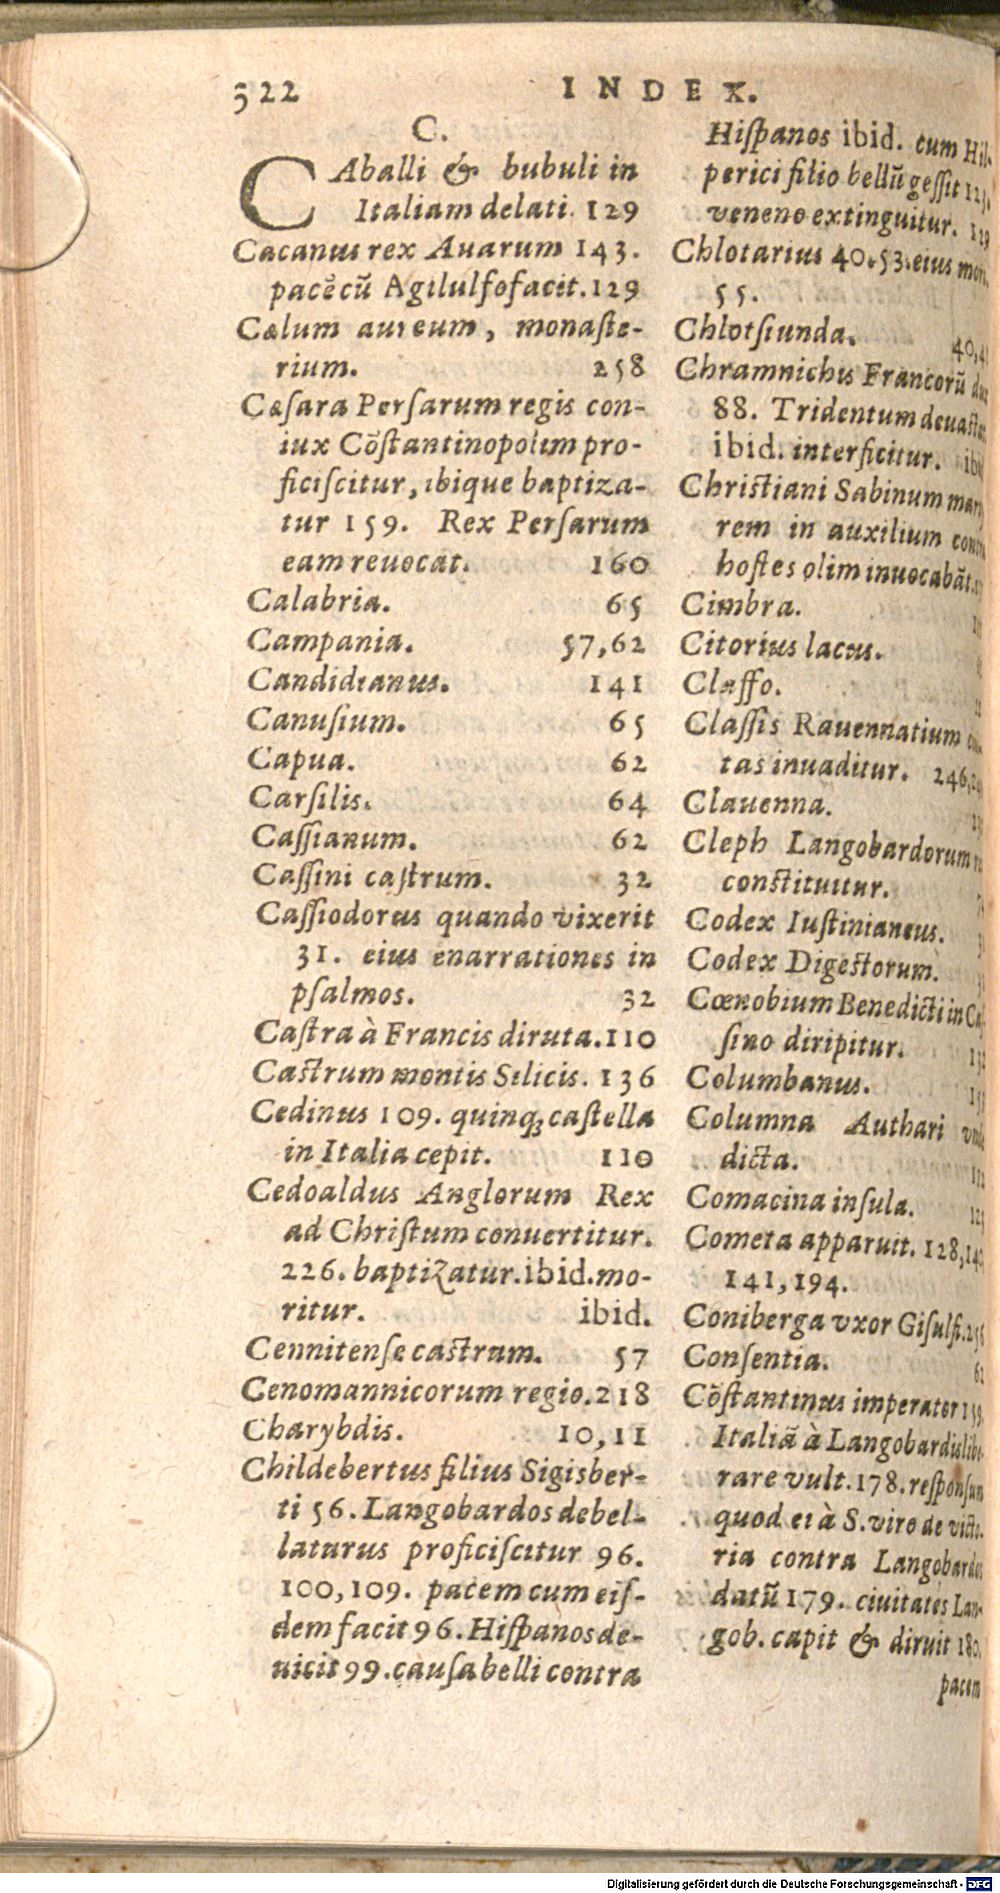 322 INDEX.
C.
CAballi & bubuli in
Italiam delati. 129
Cacanus rex Auarum 143.
pacẽ cũ Agilulfo facit. 129
Cælum aureum, monaſte-
rium. 258
Cæſara Perſarum regis con-
iux Cõſtantinopolim pro-
ficiſcitur, ibique baptiza-
tur 159. Rex Perſarum
eam reuocat. 160
Calabria. 65
Campania. 57,62
Candidianus. 141
Canuſium. 65
Capua. 62
Carſilis. 64
Caſſianum. 62
Caſſini caſtrum. 32
Caſſiodorus quando vixerit
31. eius enarrationes in
pſalmos. 32
Caſtra à Francis diruta. 110
Caſtrum montis Silicis. 136
Cedinus 109. quinq; caſtella
in Italia cepit. 110
Cedoaldus Anglorum Rex
ad Chriſtum conuertitur.
226. baptizatur. ibid. mo-
ritur. ibid.
Cennitenſe caſtrum. 57
Cenomannicorum regio. 218
Charybdis. 10,11
Childebertus filius Sigisber-
ti 56. Langobardos debel-
laturus proficiſcitur 96.
100, 109. pacem cum eiſ-
dem facit 96. Hiſpanos de-
uicit 99. cauſa belli contra
Hiſpanos ibid. cum Hil-
perici filio bellũ geſſit 123.
veneno extinguitur. 129
Chlotarius 40. 53. eius mors
55.
Chlotſiunda. 40,41
Chramnichis Francorũ dux
88. Tridentum deuaſtat
ibid. interficitur. ibid
Chriſtiani Sabinum marty
rem in auxilium contra
hoſtes olim inuocabãt.
Cimbra.
Citorius lacus.
Claſſo.
Claſſis Rauennatium
tas inuaditur. 246,
Clauenna.
Cleph Langobardorum
conſtituitur.
Codex Iuſtinianeus.
Codex Digeſtorum.
Cœnobium Benedicti in Caſ
ſino diripitur.
Columbanus.
Columna Authari vnde
dicta.
Comacina inſula.
Cometa apparuit. 128, 140
141, 194.
Coniberga vxor Giſulfi. 256
Conſentia. 62
Cõſtantinus imperator 159.
Italiã à Langobardis libe-
rare vult. 178. reſponſum
quod ei à S. viro de victo-
ria contra Langobardos
datũ 179. ciuitates Lan-
gob. capit & diruit 180.
pacem
Digitalisierung gefördert durch die Deutsche Forschungsgemeinschaft - DFG